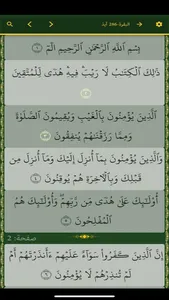 البقرة-286 آية
بِسْمِ ٱللَّهِ ٱلرَّحْمَٰنِ ٱلرَّحِيمِ الٓمٓ ١
ذَٰلِكَ ٱلْكِتَٰبُ لَا رَيْبَ ۛ فِيهِ ۛ هُدًى لِّلْمُتَّقِينَ
٢
ٱلَّذِينَ يُؤْمِنُونَ بِٱلْغَيْبِ وَيُقِيمُونَ ٱلصَّلَوٰةَ
وَمِمَّا رَزَقْنَٰهُمْ يُنفِقُونَ ٣
وَٱلَّذِينَ يُؤْمِنُونَ بِمَآ أُنزِلَ إِلَيْكَ وَمَآ أُنزِلَ مِن
قَبْلِكَ وَبِٱلْءَاخِرَةِ هُمْ يُوقِنُونَ ٤
أُو۟لَٰٓئِكَ عَلَىٰ هُدًى مِّن رَّبِّهِمْ ۖ وَأُو۟لَٰٓئِكَ هُمُ
ٱلْمُفْلِحُونَ ٥
صفحة: 2
إِنَّ ٱلَّذِينَ كَفَرُوا۟ سَوَآءٌ عَلَيْهِمْ ءَأَنذَرْتَهُمْ أَمْ
لَمْ تُنذِرْهُمْ لَا يُؤْمِنُونَ ٦